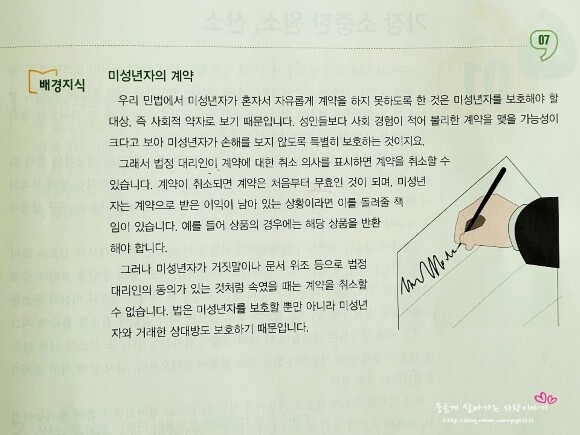 07
배경지식
미성년자의 계약
우리 민법에서 미성년자가 혼자서 자유롭게 계약을 하지 못하도록 한 것은 미성년자를 보호해야 할
대상, 즉 사회적 약자로 보기 때문입니다. 성인들보다 사회 경험이 적어 불리한 계약을 맺을 가능성이
크다고 보아 미성년자가 손해를 보지 않도록 특별히 보호하는 것이지요.
그래서 법정 대리인이 계약에 대한 취소 의사를 표시하면 계약을 취소할 수
있습니다. 계약이 취소되면 계약은 처음부터 무효인 것이 되며, 미성년
자는 계약으로 받은 이익이 남아 있는 상황이라면 이를 돌려줄 책
임이 있습니다. 예를 들어 상품의 경우에는 해당 상품을 반환
해야 합니다.
그러나 미성년자가 거짓말이나 문서 위조 등으로 법정
대리인의 동의가 있는 것처럼 속였을 때는 계약을 취소할
수 없습니다. 법은 미성년자를 보호할 뿐만 아니라 미성년
자와 거래한 상대방도 보호하기 때문입니다.
둥글게 살아가는 사람이야기